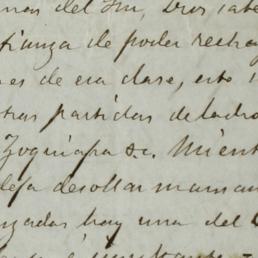 mas del Sur, Dios sabe
fianza de poder recha
es de esa clase, esto
tras partidas de ladro
Zoquiapa &c. Mient
deja desollar mansam
gadas hay una del